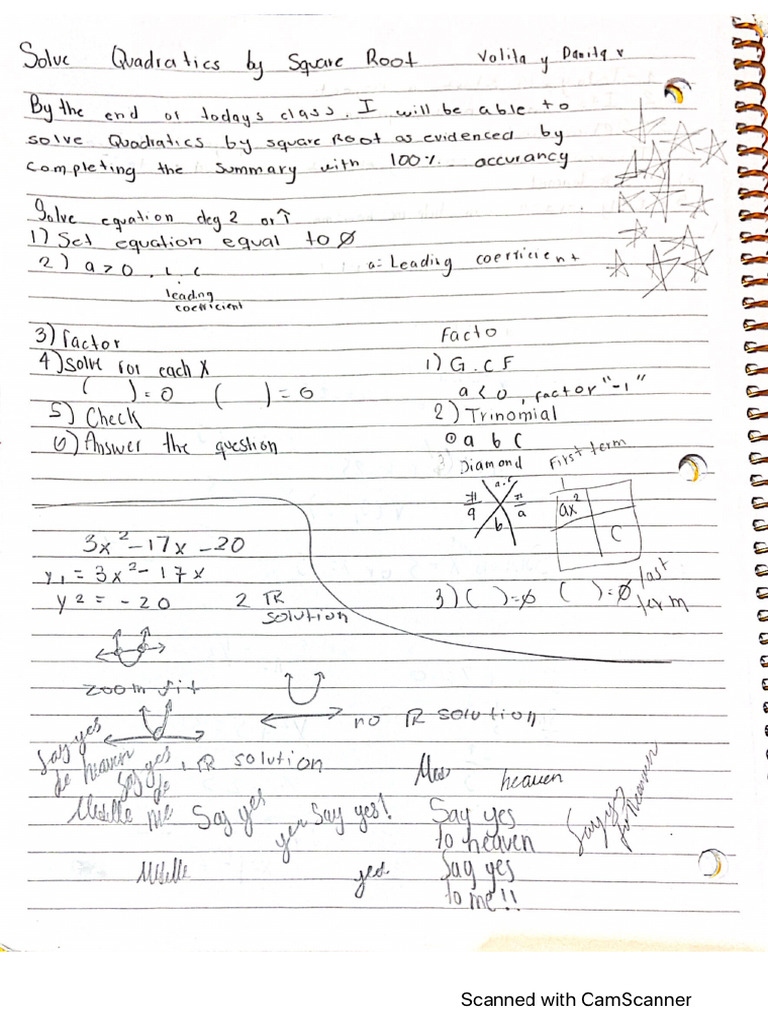 Solve Quadratics by Square Root Volita y Danita
By the end of todays class, I will be able to
solve Quadratics by square Root as evidenced by
completing the summary with 100% accurancy
Solve equation deg 2 or ↑
1) Set equation equal to Ø
2) a > 0 a: Leading coefficient
leading
coefficient
3) factor Facto
4) Solve for each x 1) G.C.F
( ) = 0 ( ) = 0 a < 0, factor "-1"
5) Check 2) Trinomial
6) Answer the question a b c
Diamond First term
a.c
# # ax²
a b a C
3x²-17x-20
y₁ = 3x²-17x
y2 = -20 2 IR 3) ( ) = Ø ( ) = Ø last
solution term
zoom fit
no IR solution
1 IR solution
Say yes
to heaven
Say yes
heaven
me Say yes
yes Say yes!
Say yes
to heaven
Say yes
to heaven
Say yes
to me!!
Scanned with CamScanner